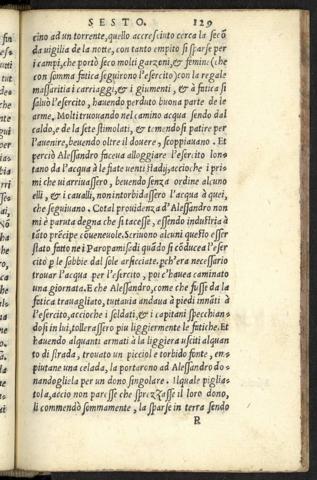 SESTO. 129
rino ad un torrente, quello accresciuto cerca la secō
da vigilia de la notte, con tanto empito si sparse per
i campi, che portò seco molti garzoni, & femine (che
con somma fatica seguirono l'esercito) con la regale
massaritia i carriaggi, & i giumenti, & à fatica si
saluò l'esercito, hauendo perduto buona parte de le
arme. Molti truouandò nel camino acqua sendo dal
caldo, e de la sete stimolati, & temendo si patire per
l'auenire, beuendo oltre il douere, scoppiauano. Et
perciò Alessandro faceua alloggiare l'esercito lon-
tano da l'acqua à le fiate uenti stadij, accioche i pri
mi che ui arriuassero, beuendo senza ordine alcuno
elli, & i caualli, non intorbidassero l'acqua à quei,
che seguiuano. Cotal prouidenza d'Alessandro non
mi è paruta degna che si tacesse, essendo industria à
tāto prēcipe cōueneuole. Scriuono alcuni questo esser
stato fatto ne i Paropamisadi quādo si cōduceа l'eser
cito p̄ le sabbie dal sole arsicciate, pch'era necessario
trouar l'acqua per l'esercito, poi c'hauea caminato
una giornata. E che Alessandro, come che fusse da la
fatica trauagliato, tuttauia andaua à piedi innāti à
l'esercito, accioche i soldati, & i capitani specchian-
dosi in lui, tollerassero piu liggiermente le fatiche. Et
hauendo alquanti armati à la liggiera usciti alquan
to di strada, trouato un picciol e torbido fonte, em-
piutane una celada, la portarono ad Alessandro do-
nandogliela per un dono singolare. Il quale piglia-
tola, accio non paresse che sprezzasse il loro dono,
li commendò sommamente, la sparse in terra sendo
R